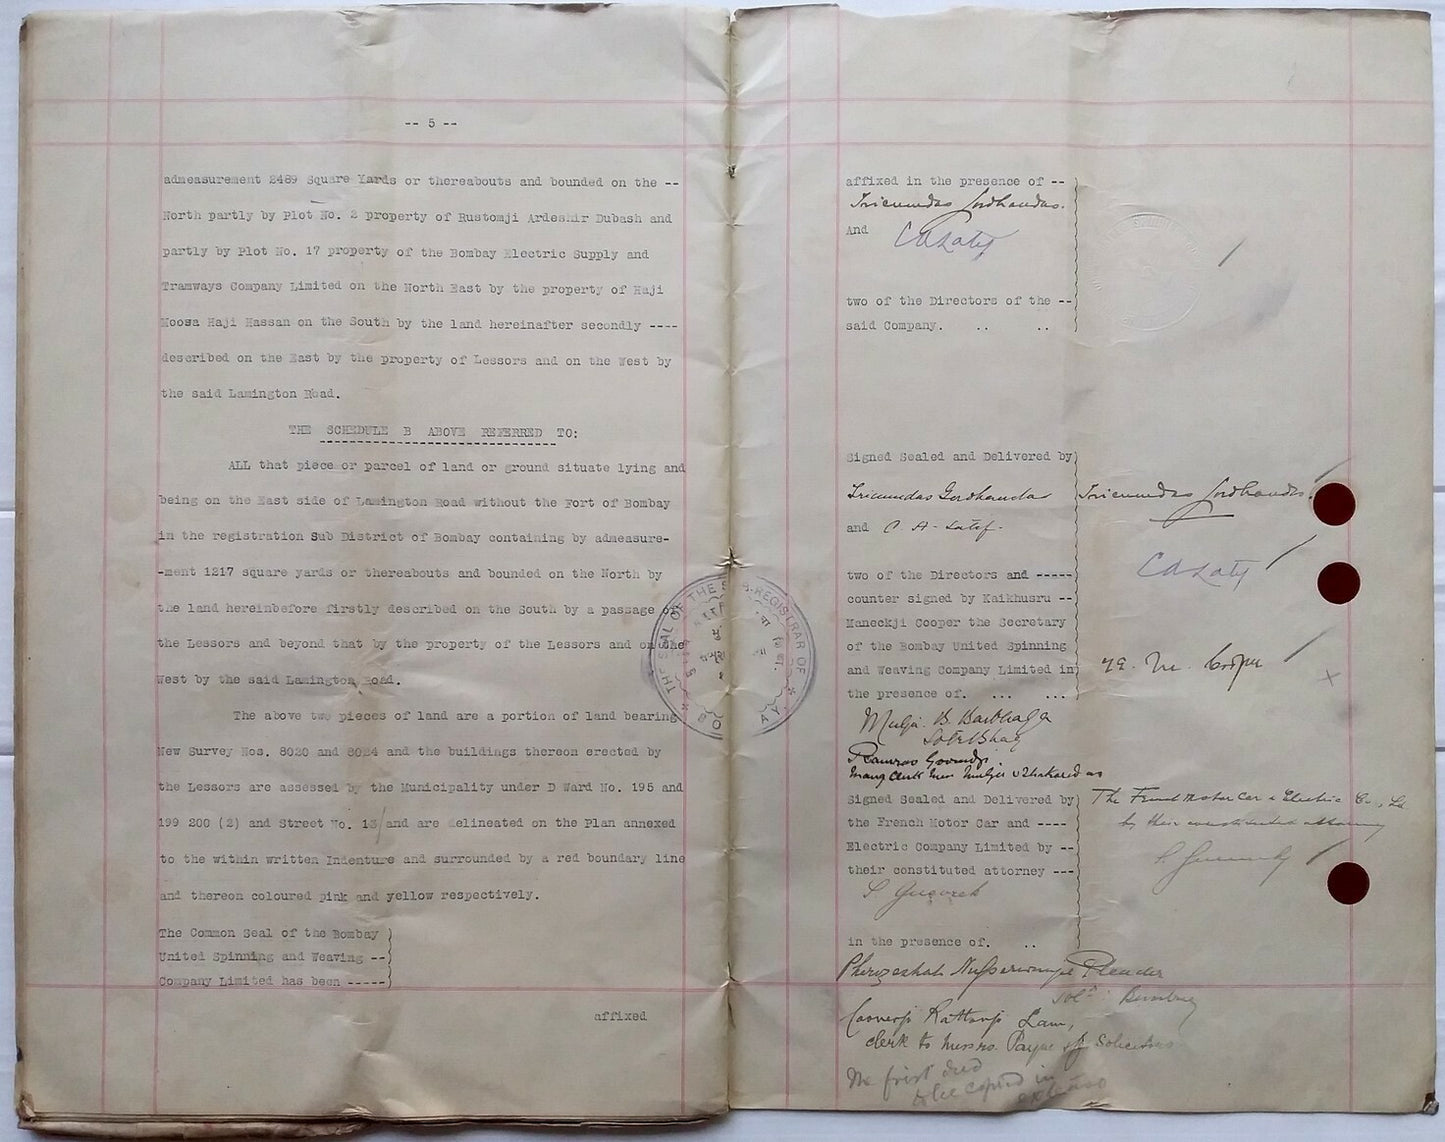 -- 5 --
admeasurement 2489 Square Yards or thereabouts and bounded on the --
North partly by Plot No. 2 property of Rustomji Ardeshir Dubash and
partly by Plot No. 17 property of the Bombay Electric Supply and
Tramways Company Limited on the North East by the property of Haji
Moosa Haji Hassan on the South by the land hereinafter secondly ----
described on the East by the property of Lessors and on the West by
the said Lamington Road.
THE SCHEDULE B ABOVE REFERRED TO:
ALL that piece or parcel of land or ground situate lying and
being on the East side of Lamington Road without the Fort of Bombay
in the registration Sub District of Bombay containing by admeasure-
-ment 1217 square yards or thereabouts and bounded on the North by
the land hereinbefore firstly described on the South by a passage of
the Lessors and beyond that by the property of the Lessors and on the
West by the said Lamington Road.
The above two pieces of land are a portion of land bearing
New Survey Nos. 8020 and 8024 and the buildings thereon erected by
the Lessors are assessed by the Municipality under D Ward No. 195 and
199 200 (2) and Street No. 13 and are delineated on the Plan annexed
to the within written Indenture and surrounded by a red boundary line
and thereon coloured pink and yellow respectively.
The Common Seal of the Bombay )
United Spinning and Weaving --
Company Limited has been -----)
affixed
THE SEAL OF THE SUB-REGISTRAR OF
BOMBAY
affixed in the presence of --
Tricumdas Gordhandas.
And
two of the Directors of the --
said Company. .. ..
Signed Sealed and Delivered by)
Tricumdas Gordhandas Tricumdas Gordhandas.
and C. A. Latif.
two of the Directors and -----
counter signed by Kaikhusru --
Maneckji Cooper the Secretary
of the Bombay United Spinning
and Weaving Company Limited in
Cooper
the presence of. ... ...)
Mulji B.
Ramrao Govindji.
Mang Clerk
Signed Sealed and Delivered by) The French Motor Car & Electric Co., Ld.
the French Motor Car and ---- by their constituted attorney
Electric Company Limited by --
their constituted attorney ---
in the presence of. ..
Pherozeshah
Solr. Bombay
Cooverji Rattonji Law,
clerk to Messrs. Payne & Solicitors